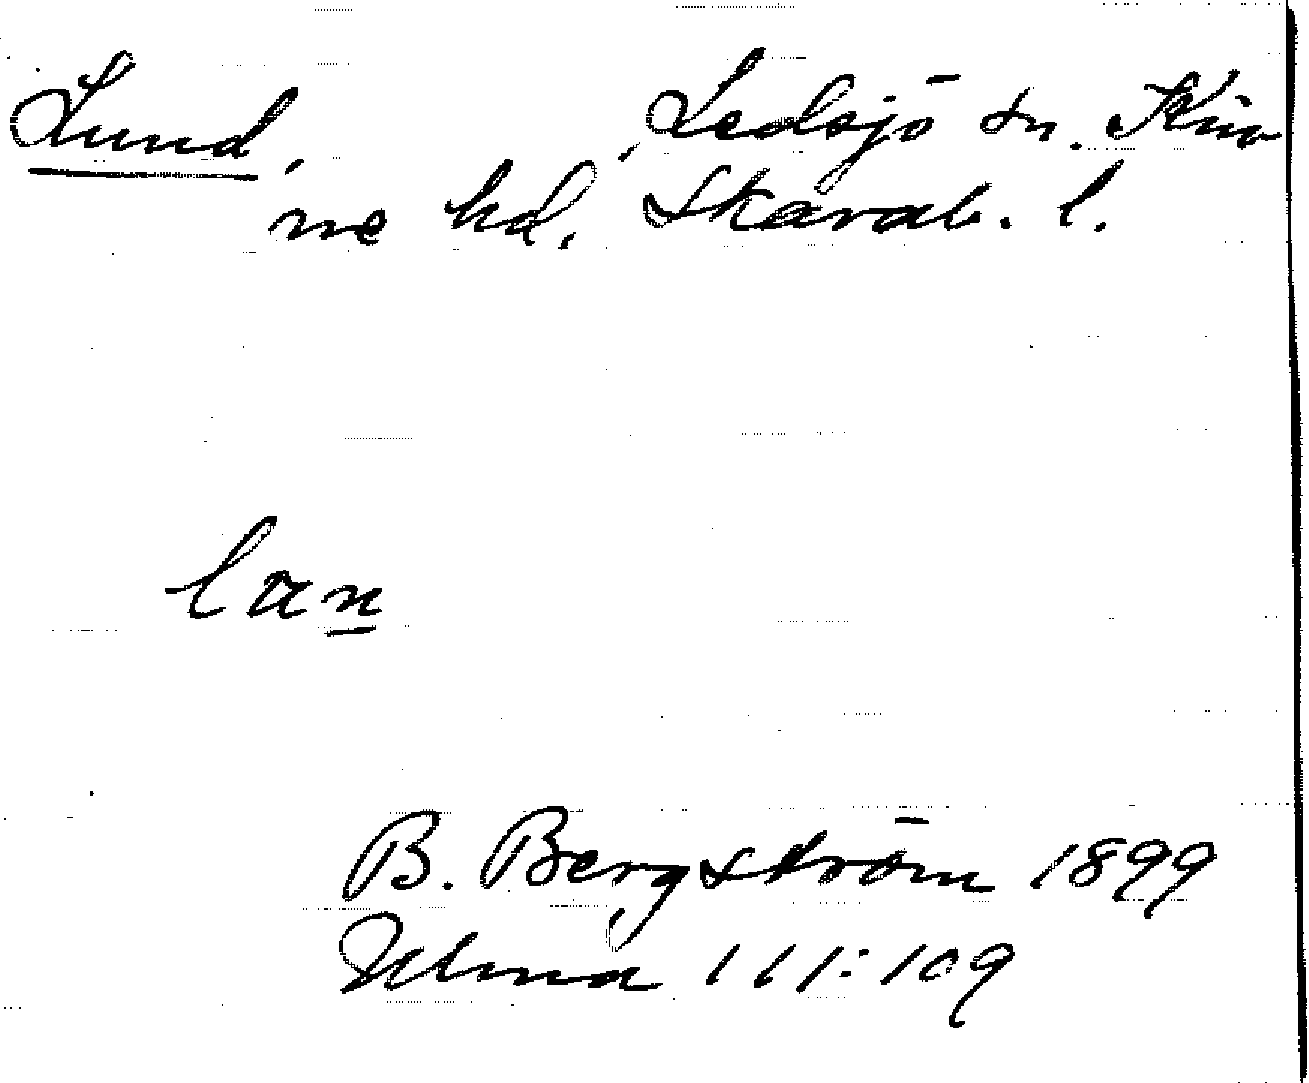 Lund, Ledsjö sn. Kin
ne hd. Skarab. l.
lan
B. Bergström 1899
Ulma 111:109